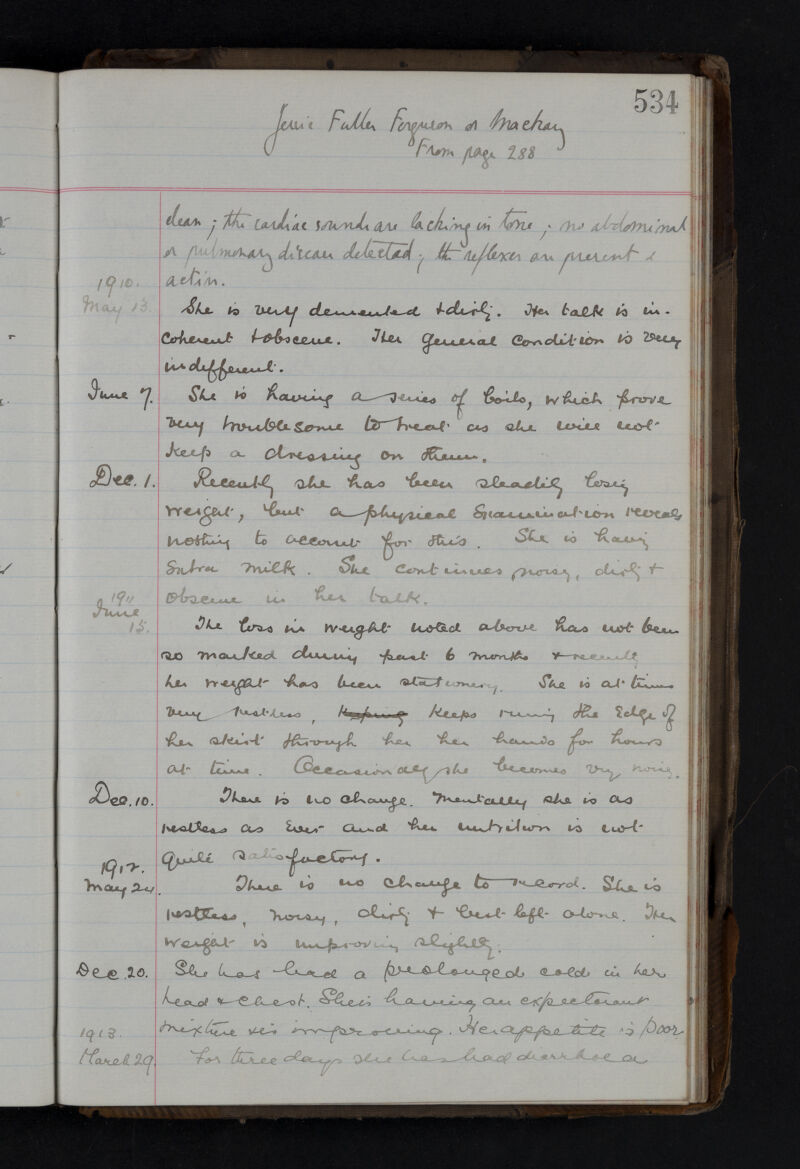 534
Jessie Fuller Ferguson or Mackay
From page 288
clean; the cardiac sounds are lacking in tone; no abdominal
or pulmonary disease detected; the reflexes are present &
1910.
active.
May 13.
She is very demented & dirty. Her talk is in-
coherent & obscene. Her general condition is very
indifferent.
June 7. She is having a series of boils, which prove
very troublesome to treat as she will not
keep a dressing on them.
Dec. 1. Recently she has been steadily losing
weight, but a physical Examination reveals
nothing to account for this. She is having
Extra milk. She continues noisy, dirty &
1911
obscene in her talk.
June 15. The loss in weight noted above has not been
so marked during past 6 months & recently
her weight has been stationery. She is at times
very restless, keeps runing the Edge of
her skirt through her her hands for hours
at time. Occasionally she becomes very noisy.
Dec. 10. There is no change. Mentally she is as
restless as Ever and her nutrition is not
1912.
quite satisfactory.
May 24. There is no change to record. She is
restless, noisy, dirty & best left alone. Her
weight is improving slightly.
Dec. 20. She has had a prolonged cold in her
head & chest. She is having an expectorant
1913.
mixture & is improving. Her appetite is poor
March 29. For three days she has had diarrhoea